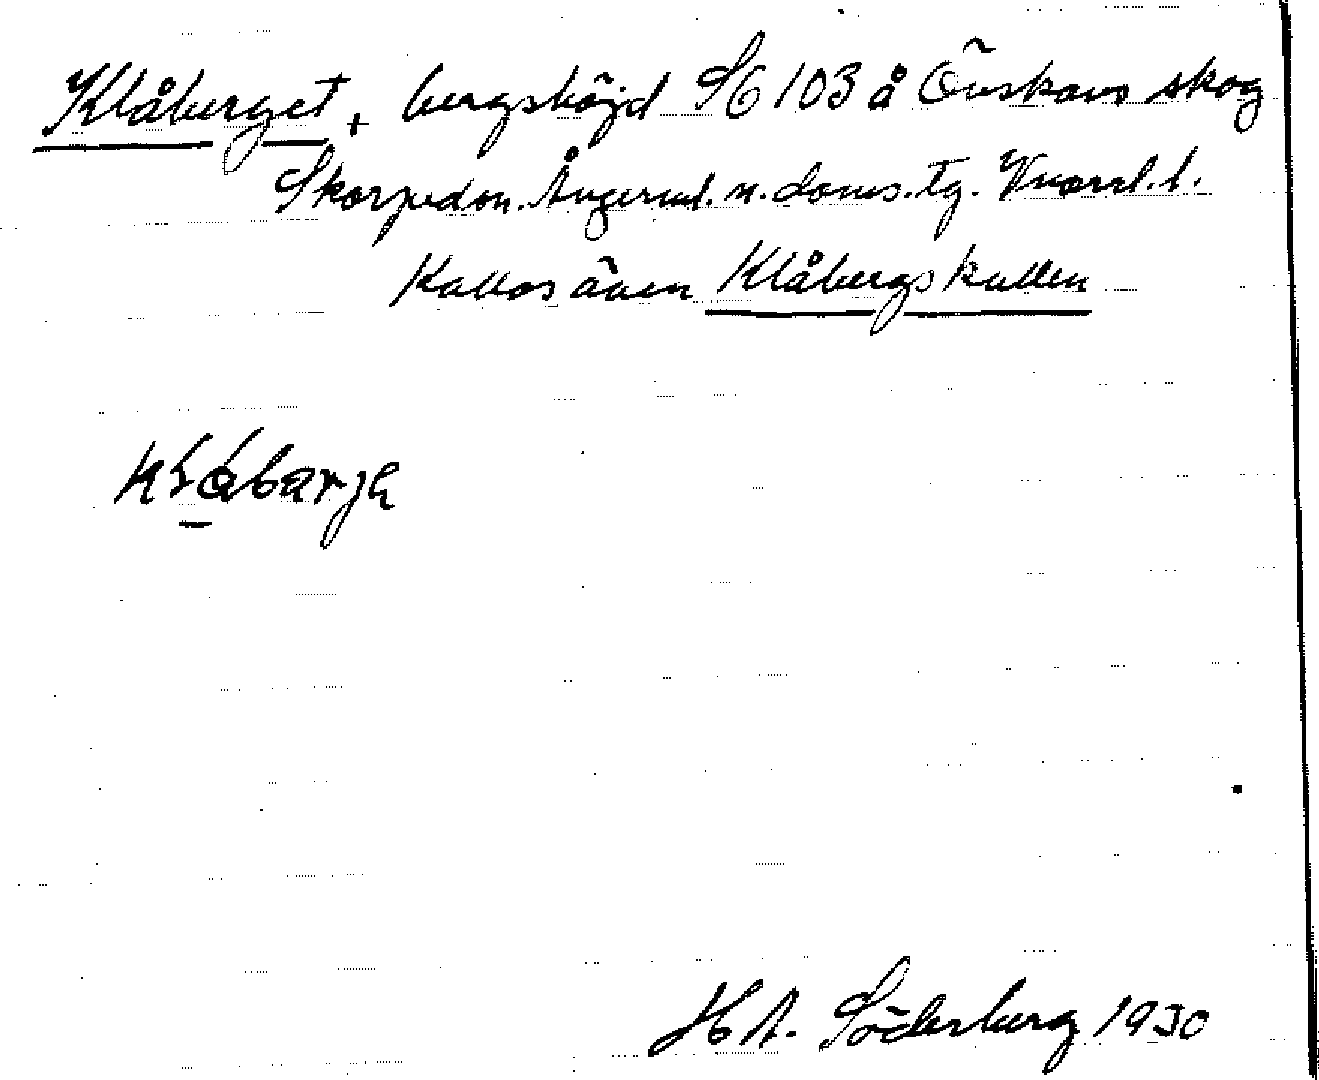 Klåberget, bergshöjd S6 103 å Önskans skog
Skorpedsn. Ångerml. n. doms. tg. Vnorrl. l.
Kallas även Klåbergskullen
H. A. Söderberg 1930